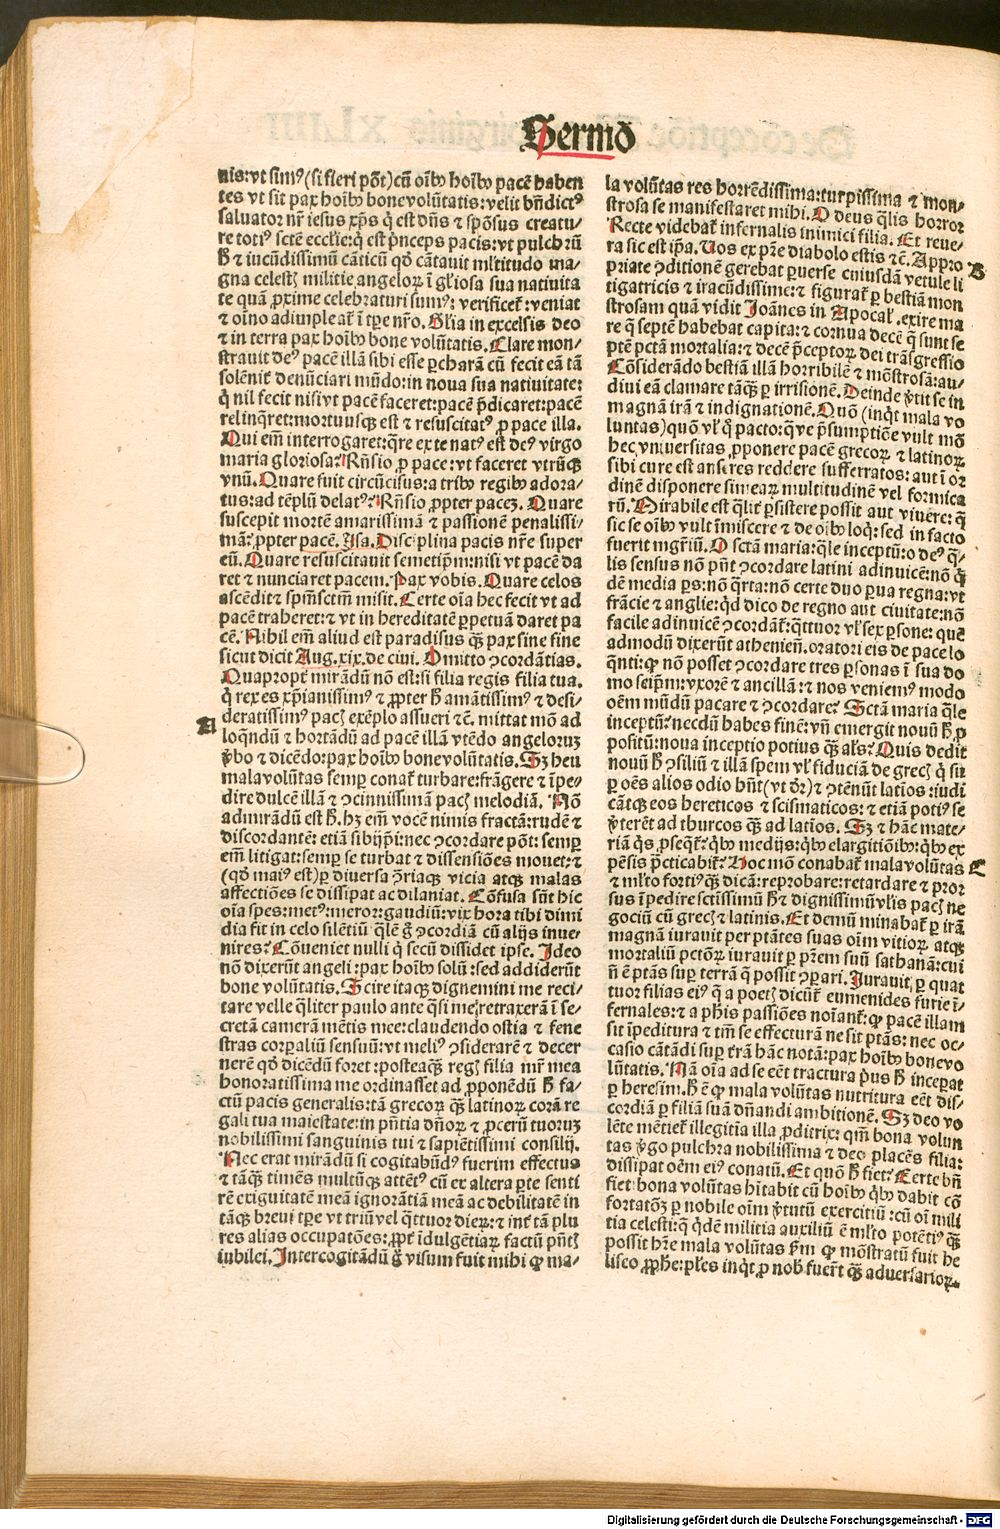 Sermo
nis:vt simꝰ(si fieri põt)cũ oĩbꝰ hoĩbꝰ pacẽ haben
tes vt sit pax hoĩbꝰ bonevolũtatis:velit bñdictꝰ
saluator nr̃ iesus xp̃s q̇ est dñs ⁊ spõsus creatu⸗
re totiꝰ sctẽ ecclie:q̇ est p̃nceps pacis:vt pulchrũ
h̃ ⁊ iucũdissimũ cãticũ qđ cãtauit ml̃titudo ma⸗
gna celestꝭ militie angeloꝝ ĩ gl̃iosa sua natiuita
te quã ꝓxime celebraturi sumꝰ: verificet̃:veniat
⁊ oĩno adimpleat̃ ĩ tꝑe nr̃o. Gl̃ia in excelsis deo
⁊ in terra pax hoĩbꝰ bone volũtatis. Clare mon⸗
strauit deꝰ pacẽ illã sibi esse ꝑcharã cũ fecit eã tã
solẽnit̃ denũciari mũdo:in noua sua natiuitate:
q̇ nil fecit nisi vt pacẽ faceret:pacẽ p̃dicaret:pacẽ
relinq̃ret:mortuusqꝫ est ⁊ resuscitatꝰ ꝓ pace illa.
Qui em̃ interrogaret:q̃re ex te natꝰ est deꝰ virgo
maria gloriosa? Rñsio ꝓ pace:vt faceret vtrũqꝫ
vnũ. Quare fuit circũcisus:a tribꝰ regibꝰ adora⸗
tus:ad tẽplũ delatꝰ? Rñsio ꝓpter pacez. Quare
suscepit mortẽ amarissimã ⁊ passionẽ penalissi⸗
mã: ꝓpter pacẽ. Isa. Disciplina pacis nr̃e super
eũ. Quare resuscitauit semetip̃m:nisi vt pacẽ da
ret ⁊ nunciaret pacem. Pax vobis. Quare celos
ascẽdit ⁊ spm̃sctm̃ misit. Certe oĩa hec fecit vt ad
pacẽ traheret:⁊ vt in hereditatẽ ꝑpetuã daret pa
cẽ. Nihil em̃ aliud est paradisus q̃ꝫ pax sine fine
sicut dicit Aug.xix.de ciui. Omitto ꝯcordãtias.
Quapropt̃ mirãdũ nõ est:si filia regis filia tua.
q̇ rex es xp̃ianissimꝰ ⁊ ꝓpter h̃ amãtissimꝰ ⁊ desi⸗
deratissimꝰ pacꝭ exẽplo assueri ⁊c̃. mittat mõ ad
A
loq̃ndũ ⁊ hortãdũ ad pacẽ illã vtẽdo angeloruz
v̓bo ⁊ dicẽdo:pax hoĩbꝰ bonevolũtatis. Sꝫ heu
malavolũtas semꝑ conat̃ turbare:frãgere ⁊ ĩpe⸗
dire dulcẽ illã ⁊ ꝯcinnissimã pacꝭ melodiã. Nõ
admirãdũ est h̃. hꝫ em̃ vocẽ nimis fractã:rudẽ ⁊
discordantẽ: etiã sibijp̃i:nec ꝯcordare põt: semꝑ
em̃ litigat:semꝑ se turbat ⁊ dissensiões mouet:⁊
(qđ maiꝰ est)ꝑ diuersa ꝯ̃riaqꝫ vicia atqꝫ malas
affectiões se dissipat ac dilaniat. Cõfusa sũt hic
oĩa spes:metꝰ:meror:gaudiũ:vix hora tibi dimi
dia fit in celo silẽtiũ q̃lẽ g̃ ꝯcordiã cũ alijs inue⸗
nires? Cõueniet nulli q̇ secũ dissidet ipse. Ideo
nõ dixerũt angeli:pax hoĩbꝰ solũ:sed addiderũt
bone volũtatis. Scire itaqꝫ dignemini me reci⸗
tare velle q̃liter paulo ante q̃si me retraxerã ĩ se⸗
cretã camerã mẽtis mee:claudendo ostia ⁊ fene
stras corꝑaliũ sensuũ:vt meliꝰ ꝯsiderarẽ ⁊ decer
nerẽ qđ dicẽdũ foret:posteaq̃ꝫ regꝭ filia mr̃ mea
honoratissima me ordinasset ad ꝓponẽdũ h̃ fa⸗
ctũ pacis generalis:tã grecoꝝ q̃ꝫ latinoꝝ corã re
gali tua maiestate:in pñtia dñoꝝ ⁊ ꝓcerũ tuoruz
nobilissimi sanguinis tui ⁊ sapiẽtissimi consilij.
Nec erat mirãdũ si cogitabũdꝰ fuerim effectus
⁊ tãq̃ꝫ timẽs multũqꝫ attẽtꝰ cũ ex altera ꝑte senti
rẽ exiguitatẽ meã ignorãtiã meã ac debilitatẽ in
tãqꝫ breui tꝑe vt triũ vel q̃ttuor dieꝝ:⁊ int̃ tã plu
res alias occupatões:ꝓpt̃ ĩdulgẽtiaꝝ factũ pñtꝭ
iubilei. Intercogitãdũ g̃ visum fuit mihi ꝙ ma⸗
la volũtas res horrẽdissima:turpissima ⁊ mon⸗
strosa se manifestaret mihi. O deus q̃lis horror
Recte videbat̃ infernalis inimici filia. Et reue⸗
ra sic est ip̃a. Uos ex pr̃e diabolo estis ⁊c̃. Appro
B
priate ꝯditionẽ gerebat ꝑuerse cuiusdã vetule li
tigatricis ⁊ iracũdissime:⁊ figurat̃ ꝑ bestiã mon
strosam quã vidit Joãnes in Apocal̃. exire ma
re q̇ septẽ habebat capita:⁊ cornua decẽ q̇ sunt se
ptẽ pctã mortalia:⁊ decẽ p̃ceptoꝝ dei trãsgressio
Cõsiderãdo bestiã illã horribilẽ ⁊ mõstrosã:au⸗
diui eã clamare tãq̃ꝫ ꝑ irrisionẽ. Deinde v̓tit se in
magnã irã ⁊ indignationẽ. Quõ (inq̇t mala vo
luntas)quõ vl̃ q̇ pacto:q̃ve p̃sumptiõe vult mõ
hec vniuersitas ꝓponere pacẽ grecoꝝ ⁊ latinoꝝ
sibi cure est anseres reddere sufferratos: aut ĩ or
dinẽ disponere simeaꝝ multitudinẽ vel formica
rũ. Mirabile est q̃lit̃ ꝑsistere possit aut viuere: q̃
sic se oĩbꝰ vult ĩmiscere ⁊ de oĩbꝰ loq̇: sed in facto
fuerit mgr̃iũ. O sctã maria:q̃le inceptũ:o deꝰ q̃⸗
lis sensus nõ pñt ꝯcordare latini adinuicẽ:nõ q̇
dẽ media ps:nõ q̃rta:nõ certe duo ꝑua regna:vt
frãcie ⁊ anglie:q̇d dico de regno aut ciuitate:nõ
facile adinuicẽ ꝯcordãt̃:q̃ttuor vl̃ sex ꝑsone: quẽ
admodũ dixerũt atheniẽñ.oratori eis de pace lo
q̃nti:ꝙ nõ posset ꝯcordare tres ꝑsonas ĩ sua do
mo seip̃m:vxorẽ ⁊ ancillã:⁊ nos veniemꝰ modo
oẽm mũdũ pacare ⁊ ꝯcordare? Sctã maria q̃le
inceptũ?necdũ habes finẽ:vñ emergit nouũ h̃ ꝓ
positũ:noua inceptio potius q̃ꝫ al̃s? Quis dedit
nouũ h̃ ꝯsiliũ ⁊ illã spem vl̃ fiduciã de grecꝭ q̇ sũt
ꝑ oẽs alios odio hñt(vt dr̃)⁊ ꝯtẽnũt latĩos:iudi
cãtqꝫ eos hereticos ⁊ scismaticos:⁊ etiã potiꝰ se
v̓terẽt ad thurcos q̃ꝫ ad latĩos. Sꝫ ⁊ hãc mate⸗
riã q̇s ꝓseq̇t̃:q̇bꝰ medijs:q̇bꝰ elargitiõibꝰ:q̇bꝰ ex
pẽsis p̃cticabit̃? Hoc mõ conabat̃ malavolũtas
C
⁊ ml̃to fortiꝰ q̃ꝫ dicã:reprobare:retardare ⁊ pror
sus ĩpedire sctissimũ h̃ ⁊ dignissimũ vl̃is pacꝭ ne
gociũ cũ grecꝭ ⁊ latinis. Et demũ minabat̃ ꝑ irã
magnã iurauit per ptãtes suas oĩm vitioꝝ atqꝫ
mortaliũ pctõꝝ iurauit ꝑ pr̃em suũ sathanã:cui
ñ ẽ ptãs suꝑ terrã q̃ possit ꝯꝑari. Jurauit ꝑ quat
tuor filias eiꝰ q̃ a poetꝭ dicũt̃ eumenides furie ĩ⸗
fernales:⁊ a phĩs passiões noĩant̃:ꝙ pacẽ illam
sit ĩpeditura ⁊ tm̃ se effecturã ne sit ptãs: nec oc⸗
casio cãtãdi suꝑ tr̃ã hãc notã:pax hoĩbꝰ bonevo
lũtatis. Nã oĩa ad se eẽt tractura p̓us h̃ inceꝑat
ꝑ heresim. H̃ ẽ ꝙ mala volũtas nutritura eẽt dis⸗
cordiã ꝑ filiã suã dñandi ambitionẽ. Sꝫ deo vo
lẽte mẽtiet̃ illegitia illa ꝓditrix: qm̃ bona volun
tas v̓go pulchra nobilissima ⁊ deo placẽs filia:
dissipat oẽm eiꝰ conatũ. Et quõ h̃ fiet? Certe bñ
fiet:bona volũtas hĩtabit cũ hoĩbꝰ q̇bꝰ dabit cõ
fortatõꝫ ꝑ nobile oĩm v̓tutũ exercitiũ:cũ oĩ mili
tia celesti:q̃ q̇dẽ militia auxiliũ ẽ ml̃to potẽtiꝰ q̃ꝫ
possit hr̃e mala volũtas fm̃ ꝙ mõstratũ fuit he
liseo ꝓphe:pl̃es inq̇t ꝓ nobꝭ fuer̃t q̃ꝫ aduersarioꝝ.
Digitalisierung gefördert durch die Deutsche Forschungsgemeinschaft - DFG